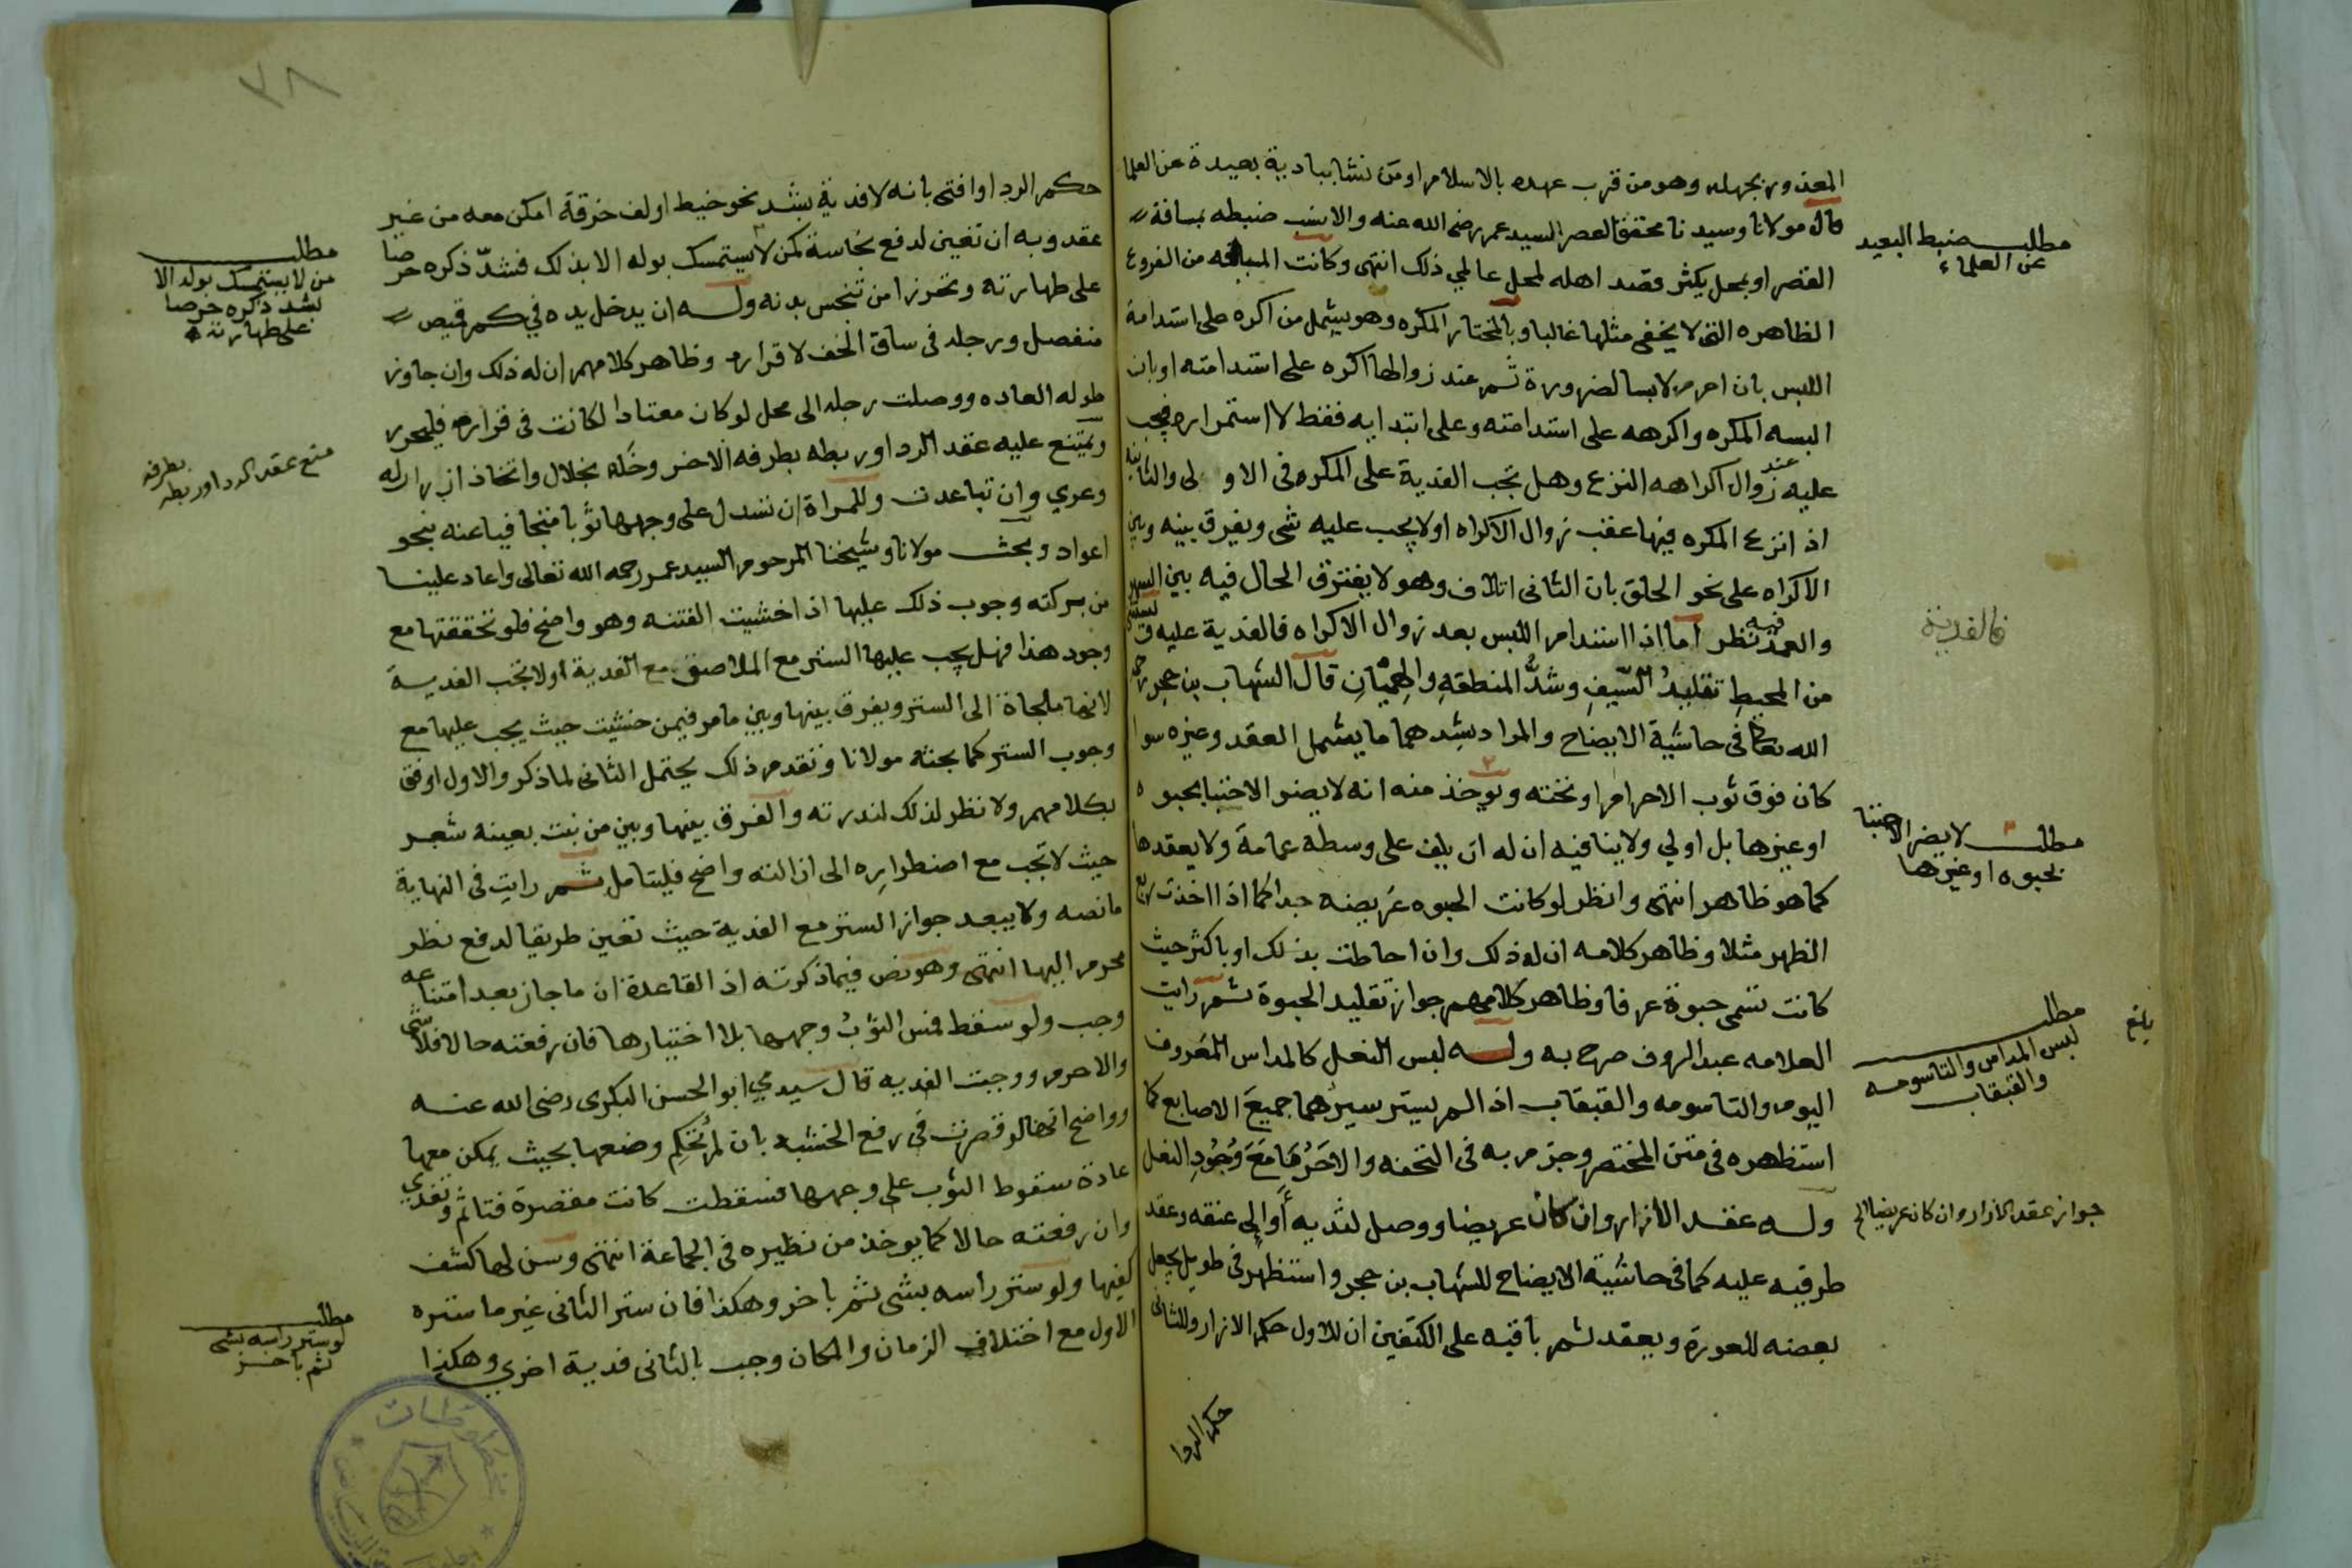 المعذور بجهله وهو من قرب عهده بالاسلام او من نشا ببادية بعيدة عن العلما
قال مولانا وسيدنا محقق العصر السيد عمر رضى الله عنه والانسب ضبطه بمسافة
القصر او بمحل يكثر قصد اهله لمحل عالمي ذلك انتهى وكانت المسالة من الفروع
الظاهره التى لا يخفى مثلها غالبا وبالمختار المكره وهو يشمل من اكره على استدامة
اللبس بان احرم لابسا لضرورة ثم عند زوالها اكره على استدامته او بان
البسه المكره واكرهه على استدامته وعلى ابتدايه فقط لا استمراره فيجب
عليه عند زوال اكراهه النزع وهل تجب الفدية على المكره فى الاولى والثانية
اذ انزع المكره فيها عقب زوال الاكراه اولا يجب عليه شى ويفرق بينه وبين
الاكراه على نحو الحلق بان الثانى اتلاف وهو لا يفترق الحال فيه بين السهو
والعمد فيه نظر اما اذا استدام اللبس بعد زوال الاكراه فالفدية عليه ويستثنى
من المحيط تقليد السيف وشد المنطقة والهميان قال الشهاب بن حجر رحمه
الله تعالى فى حاشية الايضاح والمراد بشدهما ما يشمل العقد وغيره سوا
كان فوق ثوب الاحرام او تحته ويوخذ منه انه لا يضر الاحتبا بحبوه
او غيرها بل اولي ولا ينافيه ان له ان يلف على وسطه عمامة ولا يعقدها
كما هو ظاهر انتهى وانظر لو كانت الحبوه عريضه جدا كما اذا اخذت ربع
الظهر مثلا وظاهر كلامه ان له ذلك وان احاطت بذلك او باكثر حيث
كانت تسمى حبوة عرفا وظاهر كلامهم جواز تقليد الحبوة ثم رايت
العلامه عبد الروف صرح به وله لبس النعل كالمداس المعروف
اليوم والتاسومه والقبقاب اذ الم يستر سيرهما جميع الاصابع كما
استظهره فى متن المختصر وجزم به فى التحفه والا حرما مع وجود النعل
وله عقد الازار وان كان عريضا ووصل لثدييه أو الى عنقه وعقد
طرفيه عليه كما فى حاشية الايضاح للشهاب بن حجر واستظهر فى طويل يجعل
بعضه للعورة ويعقد ثم باقيه على الكتفين ان للاول حكم الازار وللثانى
حكم الردا
مطلب ضبط البعيد
عن العلماء
فالفدية
مطلب لا يضر الاحتبا
بحبوه او غيرها
مطلب
لبس المداس والتاسومه
والقبقاب
بلغ
جواز عقد الازار وان كان عريضا الخ
٣٨
حكم الردا وافتى بانه لا فدية بشد نحو خيط او لف خرقة امكن معه من غير
عقد وبه ان تعين لدفع نجاسة كمن لا يستمسك بوله الا بذلك فشد ذكره حرصا
على طهارته وتحرزا من تنجس بدنه وله ان يدخل يده في كم قميص
منفصل ورجله فى ساق الخف لا قراره وظاهر كلامهم ان له ذلك وان جاوز
طوله العاده ووصلت رجله الى محل لو كان معتادا لكانت فى قراره فليحرر
ويمتنع عليه عقد الردا وربطه بطرفه الاخر وخله بخلال واتخاذ ازرار له
وعري وان تباعدت وللمراة ان تسدل على وجهها ثوبا متجافيا عنه بنحو
اعواد وبحث مولانا وشيخنا المرحوم السيد عمر رحمه الله تعالى واعاد علينا
من بركته وجوب ذلك عليها اذا خشيت الفتنه وهو واضح فلو تحققتها مع
وجود هذا فهل يجب عليها الستر مع الملاصق مع الفدية اولا تجب الفدية
لانها ملجاة الى الستر ويفرق بينها وبين ما مر فيمن خشيت حيث يجب عليها مع
وجوب الستر كما بحثه مولانا وتقدم ذلك يحتمل الثانى لما ذكر والاول اوفق
بكلامهم ولا نظر لذلك لندرته والفرق بينها وبين من نبت بعينه شعر
حيث لا تجب مع اضطراره الى ازالته واضح فليتامل ثم رايت فى النهاية
ما نصه ولا يبعد جواز الستر مع الفدية حيث تعين طريقا لدفع نظر
محرم اليها انتهى وهو نص فيما ذكرته اذ القاعدة ان ما جاز بعد امتناعه
وجب ولو سقط فمس الثوب وجهها بلا اختيارها فان رفعته حالا فلا شى
والا حرم ووجبت الفديه قال سيدي ابو الحسن البكرى رضى الله عنه
وواضح انها لو قصرت فى رفع الخشبه بان لم تحكم وضعها بحيث يمكن معها
عادة سقوط الثوب على وجهها فسقطت كانت مقصرة فتاثم وتفدي
وان رفعته حالا كما يوخذ من نظيره فى الجماعة انتهى وسن لها كشف
كفيها ولو ستر راسه بشى ثم باخر وهكذا فان ستر الثانى غير ما ستره
الاول مع اختلاف الزمان والمكان وجب بالثانى فدية اخري وهكذا
مطلب
من لا يستمسك بوله الا
بشد ذكره حرصا
على طهارته
منع عقد الردا وربطه بطرفه
مطلب
لو ستر راسه بشى
ثم باخر
مخطوطات